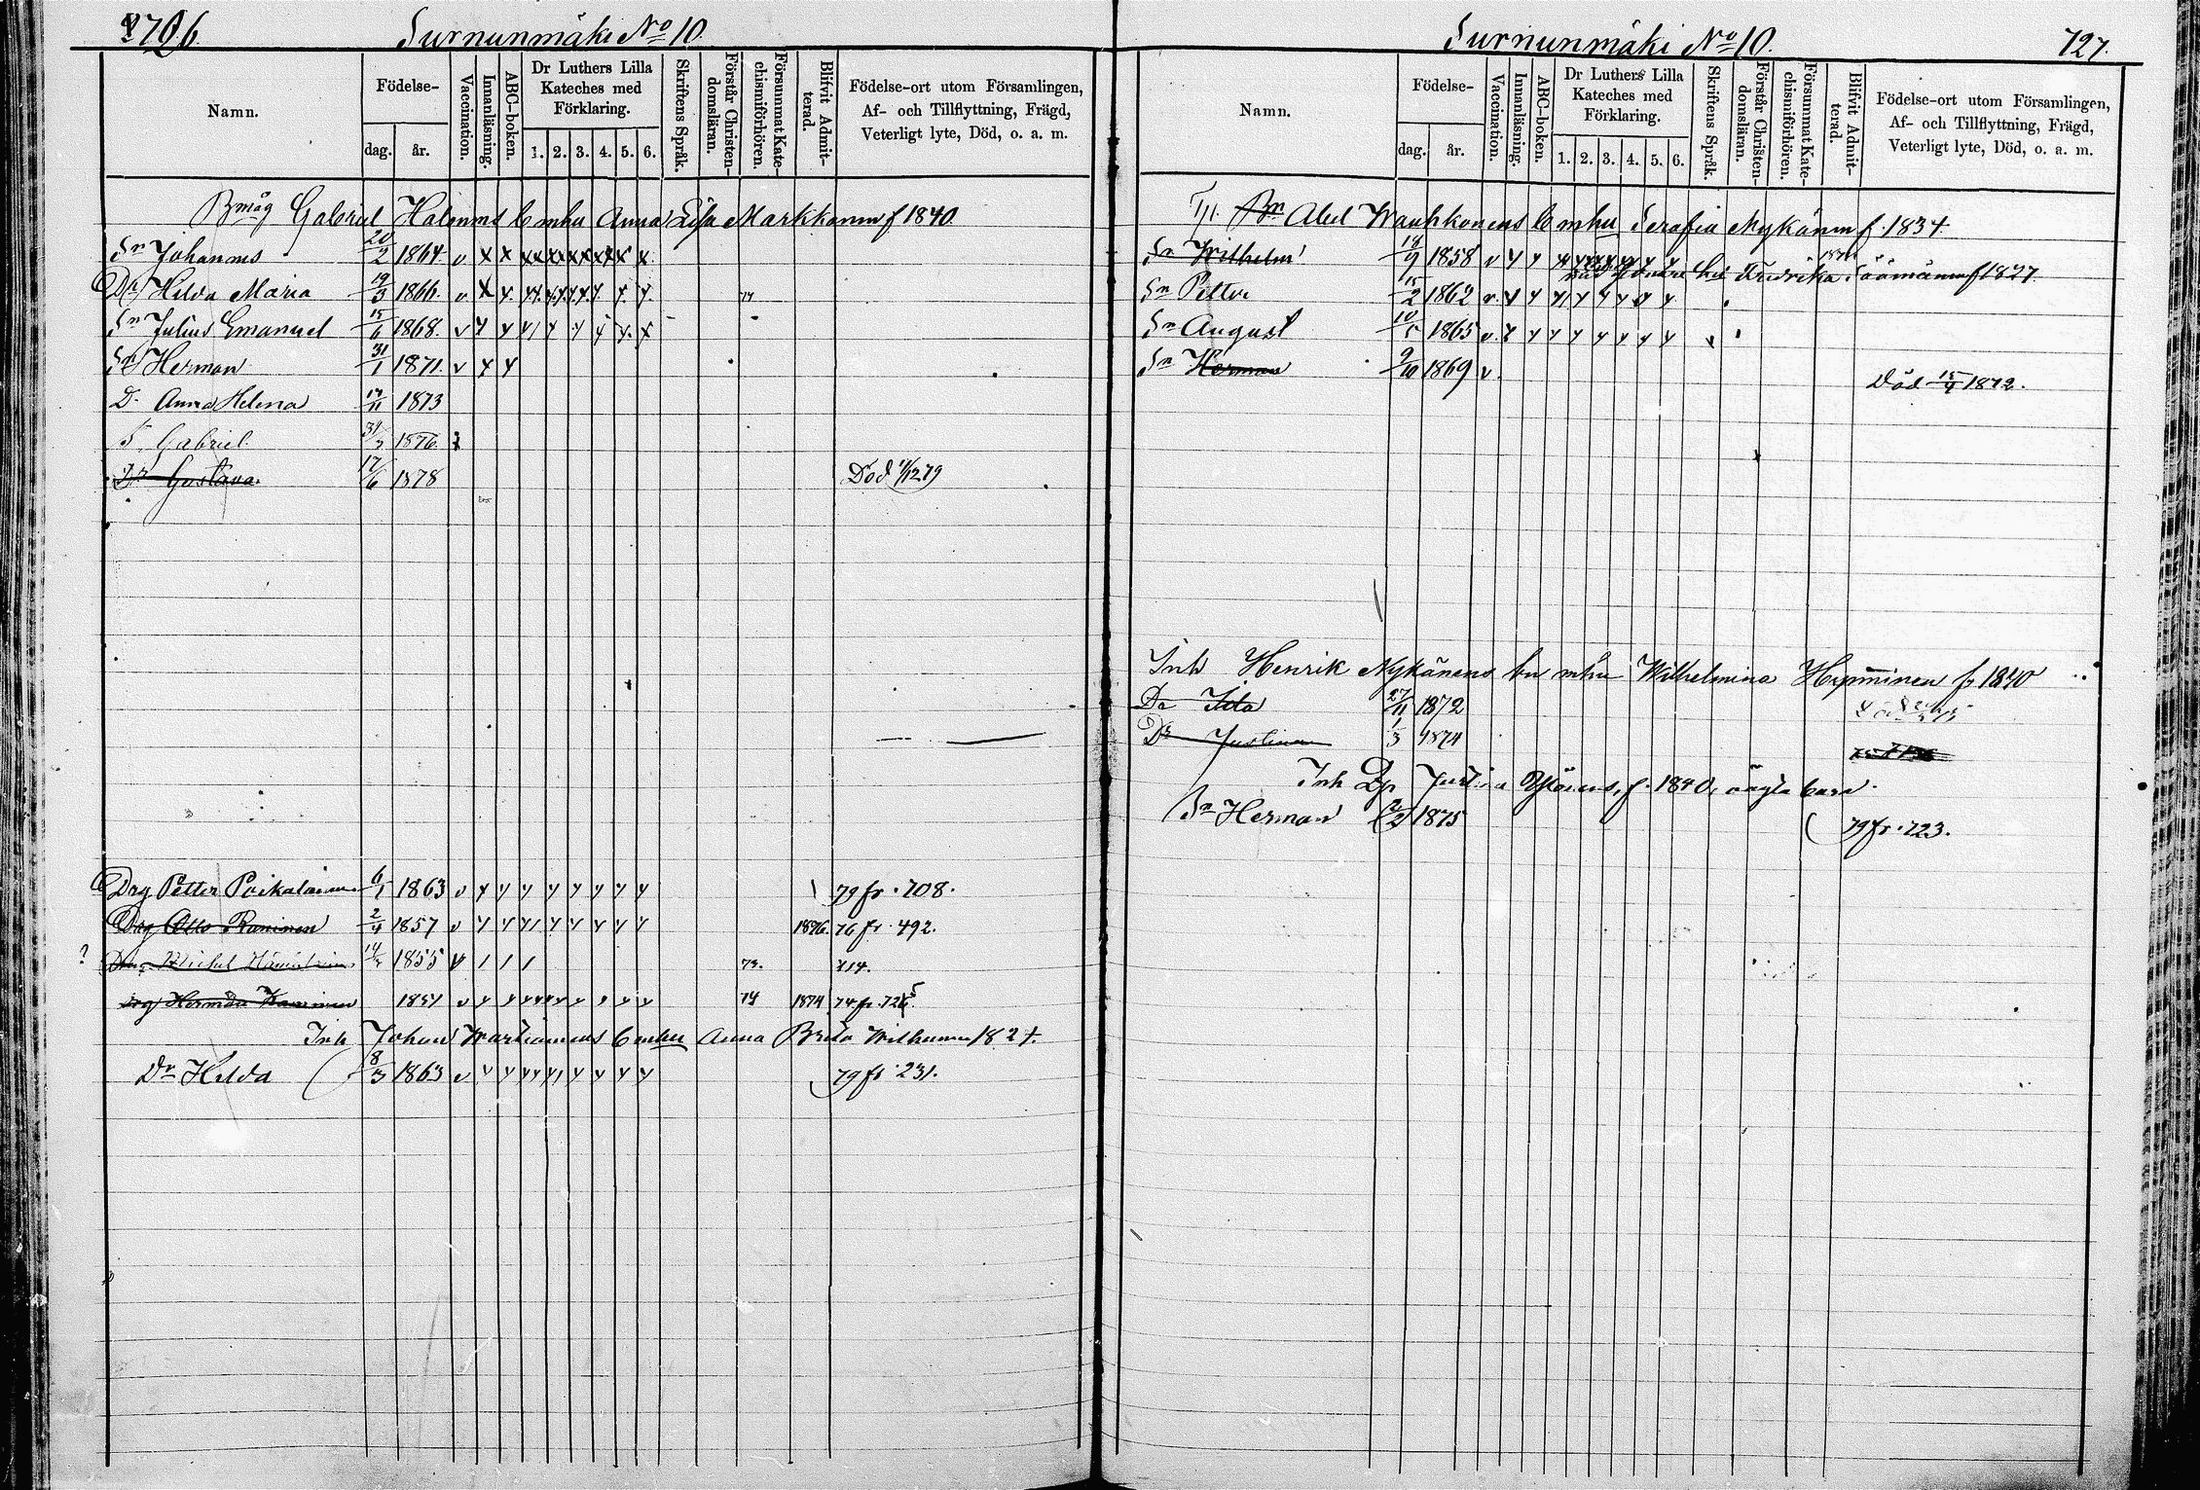 726.
Surnunmäki No 10.
Namn.
Födelse-
dag.
år.
Vaccination.
Innanläsning.
ABC-boken.
Dr Luthers Lilla Kateches med Förklaring.
1. 2. 3. 4. 5. 6.
Skriftens Språk.
Förstår Christendomsläran.
Försummat Katechismiförhören.
Blifvit Admitterad.
Födelse-ort utom Församlingen,
Af- och Tillflyttning, Frägd,
Veterligt lyte, Död, o. a. m.
Bmåg Gabriel Halenius b m hu Anna Lisa Markkanen f 1840
Sn Johannes 20/2 1864. v x x
Dr Hilda Maria 19/3 1866. v x 74
Sn Julius Emanuel 15/6 1868. v
Sn Herman 31/1 1871. v
D. Anna Helena 17/11 1873
S. Gabriel. 31/3 1876.
Dr Gustava. 17/6 1878 Död 1/12 79
Drg Petter Poikalainen 6/1 1863 v 79 fr. 708.
Drg Otto Raninen 2/4 1857 v 1876. 76 fr. 492.
? 1855 73. 714.
1874 74 fr. 725
Inh Johan Martikainens b m hu Anna Brita 1827.
Dr Hilda 8/3 1863 v 79 fr 231.
Surnunmäki No 10.
727.
Namn.
Födelse-
dag.
år.
Vaccination.
Innanläsning.
ABC-boken.
Dr Luthers Lilla Kateches med Förklaring.
1. 2. 3. 4. 5. 6.
Skriftens Språk.
Förstår Christendomsläran.
Försummat Katechismiförhören.
Blifvit Admitterad.
Födelse-ort utom Församlingen,
Af- och Tillflyttning, Frägd,
Veterligt lyte, Död, o. a. m.
Abel Wauhkonens b m hu Serafia Nykänen f. 1834
Sn Wilhelm 18/9 1858 v
hu Fredrika
Sn Petter 15/2 1862 v
Sn August 10/5 1865 v
Sn Herman 9/10 1869 v Död 15/4 1872.
Inh Henrik Nykänens b m hu Wilhelmina f. 1840
Dr Ida 27/11 1872
Dr Justina 1/3 1874
Inh f. 1840, oägta barn.
Sn Herman 1875 79 fr. 723.